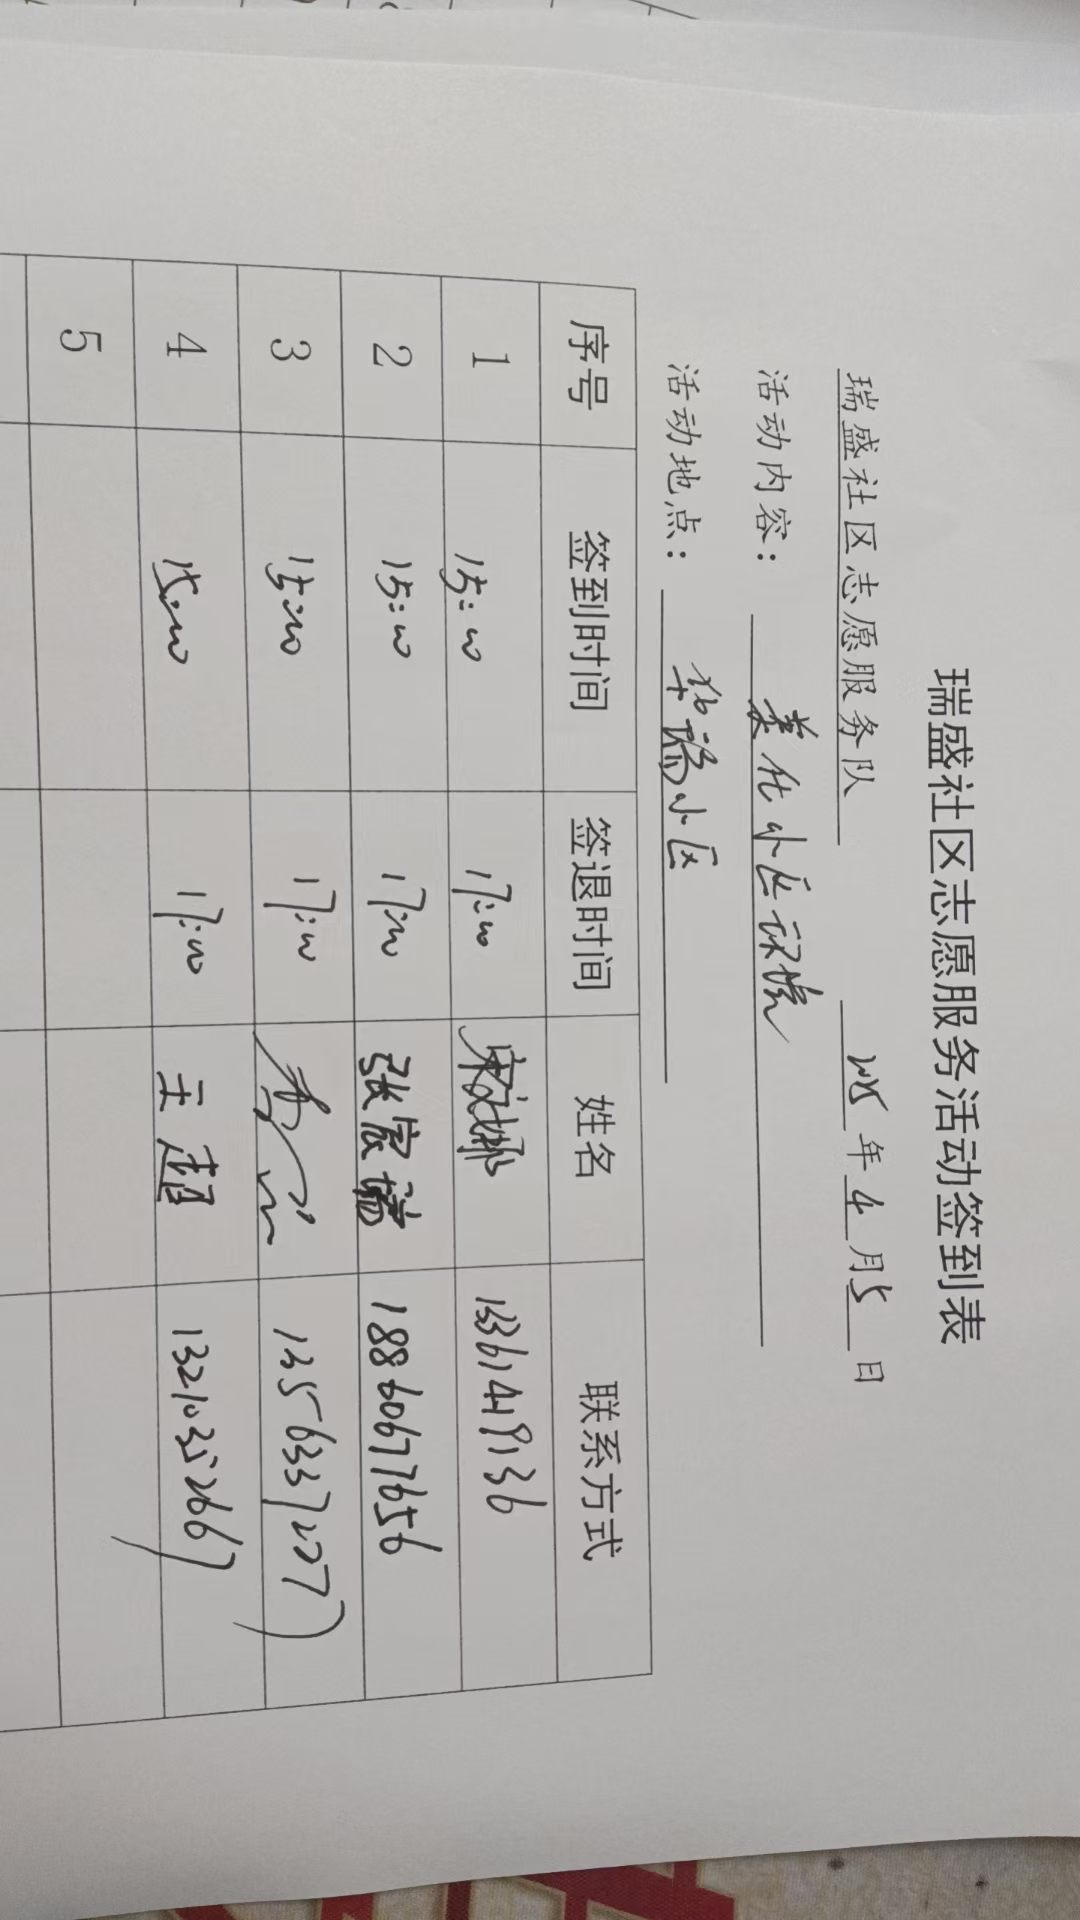 瑞盛社区志愿服务活动签到表
瑞盛社区志愿服务队 2025年4月5日
活动内容：美化小区环境
活动地点：华瑞小区
序号 签到时间 签退时间 姓名 联系方式
1 15:00 17:00 宋娜 13361419136
2 15:00 17:00 张宸瑞 18860677656
3 15:00 17:00 13563372277
4 15:00 17:00 王超 13210352667
5